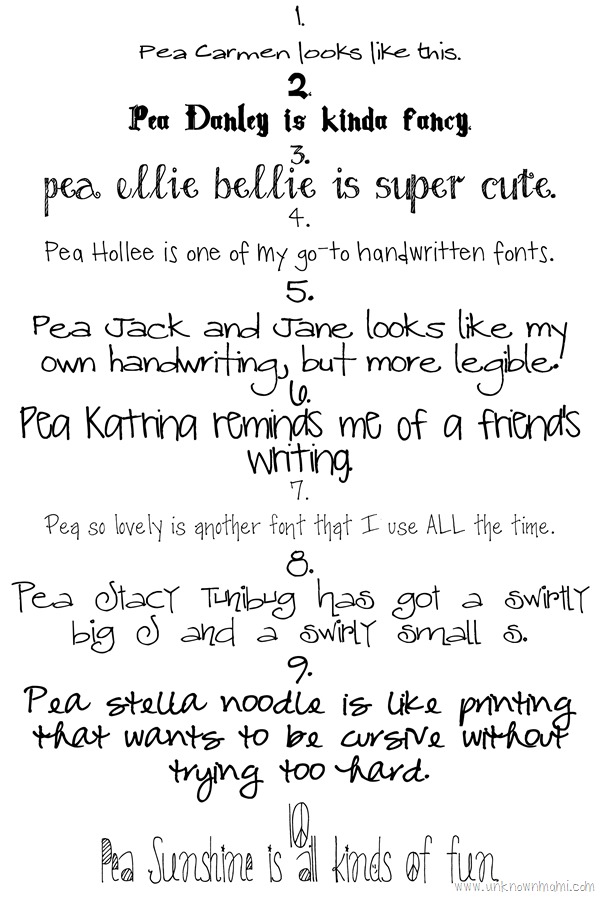 1.
Pea Carmen looks like this.
2.
Pea Danley is kinda fancy.
3.
pea ellie bellie is super cute.
4.
Pea Hollee is one of my go-to handwritten fonts.
5.
Pea Jack and Jane looks like my
own handwriting, but more legible.
6.
Pea Katrina reminds me of a friend's
writing.
7.
Pea so lovely is another font that I use ALL the time.
8.
Pea Stacy Tunibug has got a swirtly
big S and a swirly small s.
9.
Pea stella noodle is like printing
that wants to be cursive without
trying too hard.
10
Pea Sunshine is all kinds of fun.
www.unknownmami.com